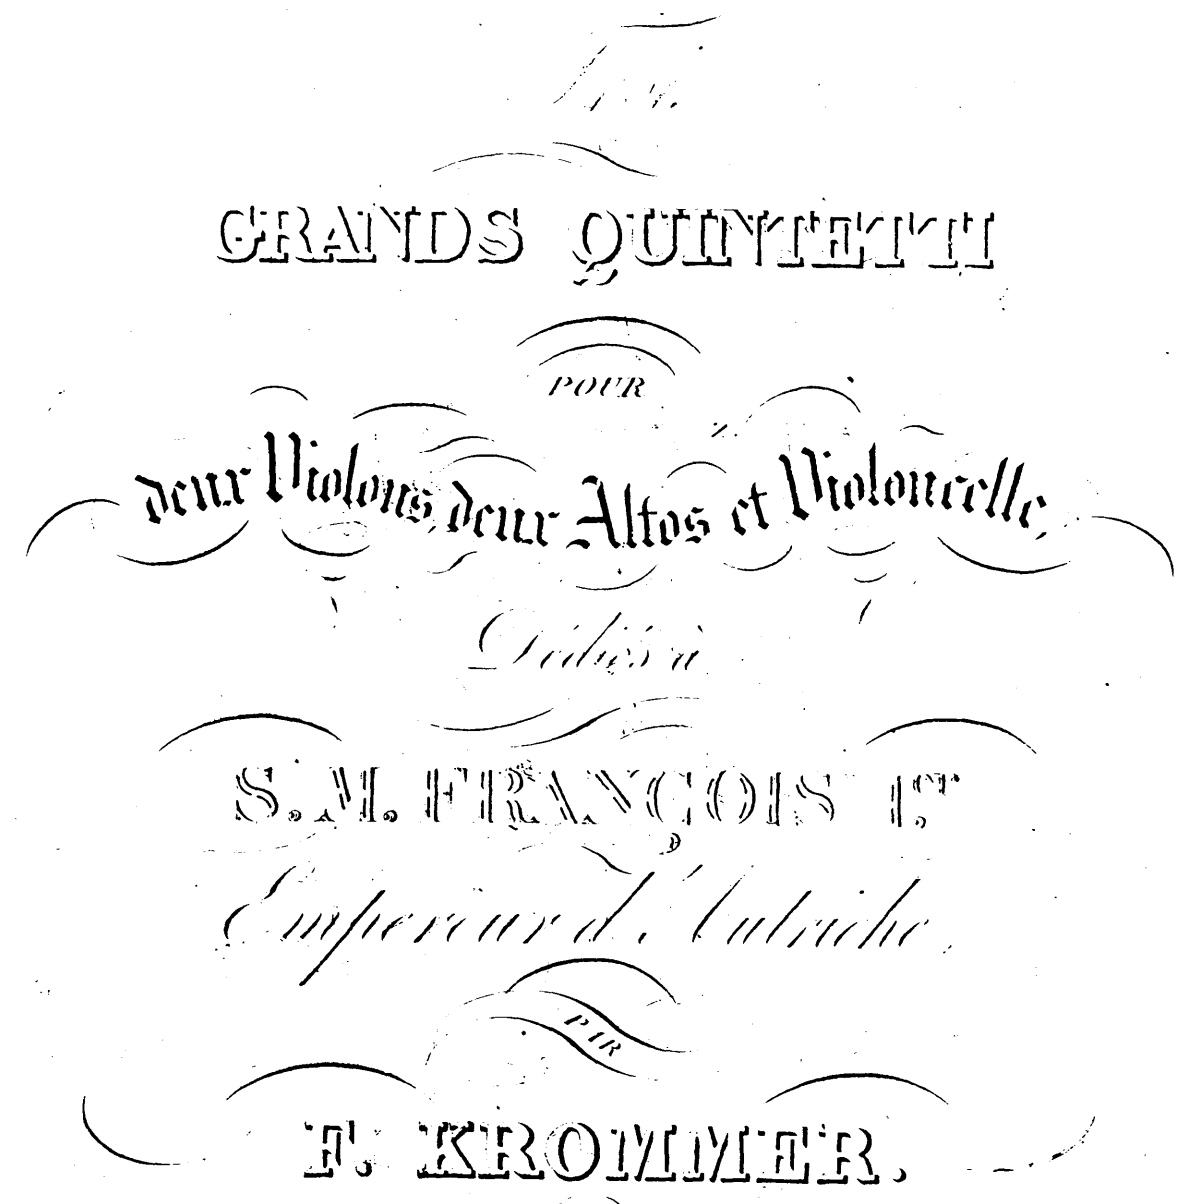 GRANDS QUINTETTI
POUR
deux Violons, deux Altos et Violoncelle,
Dédiés à
S. M. FRANÇOIS 1.er
Empereur d'Autriche,
PAR
F. KROMMER.